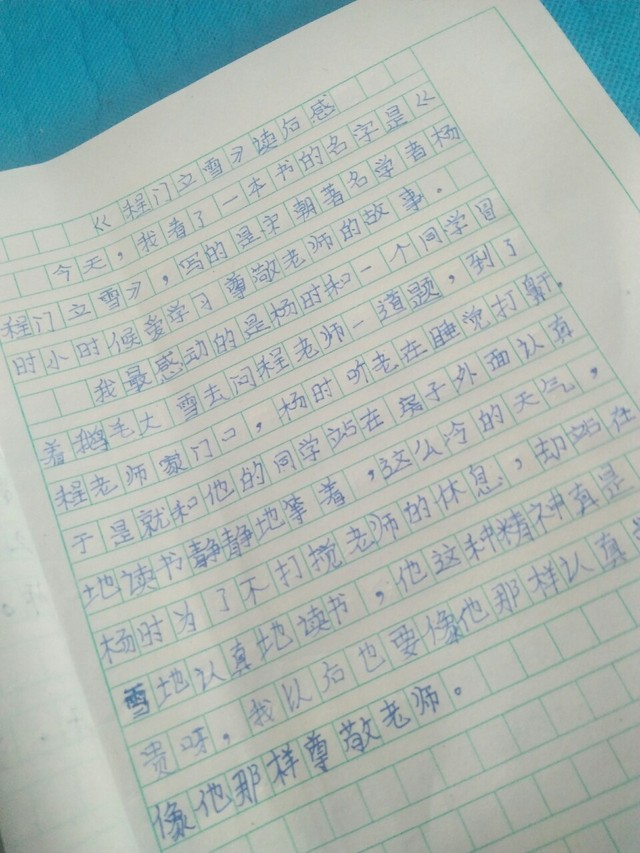 《程门立雪》读后感
今天，我看了一本书的名字是《
程门立雪》，写的是宋朝著名学者杨
时小时候爱学习尊敬老师的故事。
我最感动的是杨时和一个同学冒
着鹅毛大雪去问程老师一道题，到了
程老师家门口，杨时听老在睡觉打鼾，
于是就和他的同学站在房子外面认真
地读书静静地等着，这么冷的天气，
杨时为了不打搅老师的休息，却站在
雪地认真地读书，他这种精神真是
贵呀，我以后也要像他那样认真
像他那样尊敬老师。